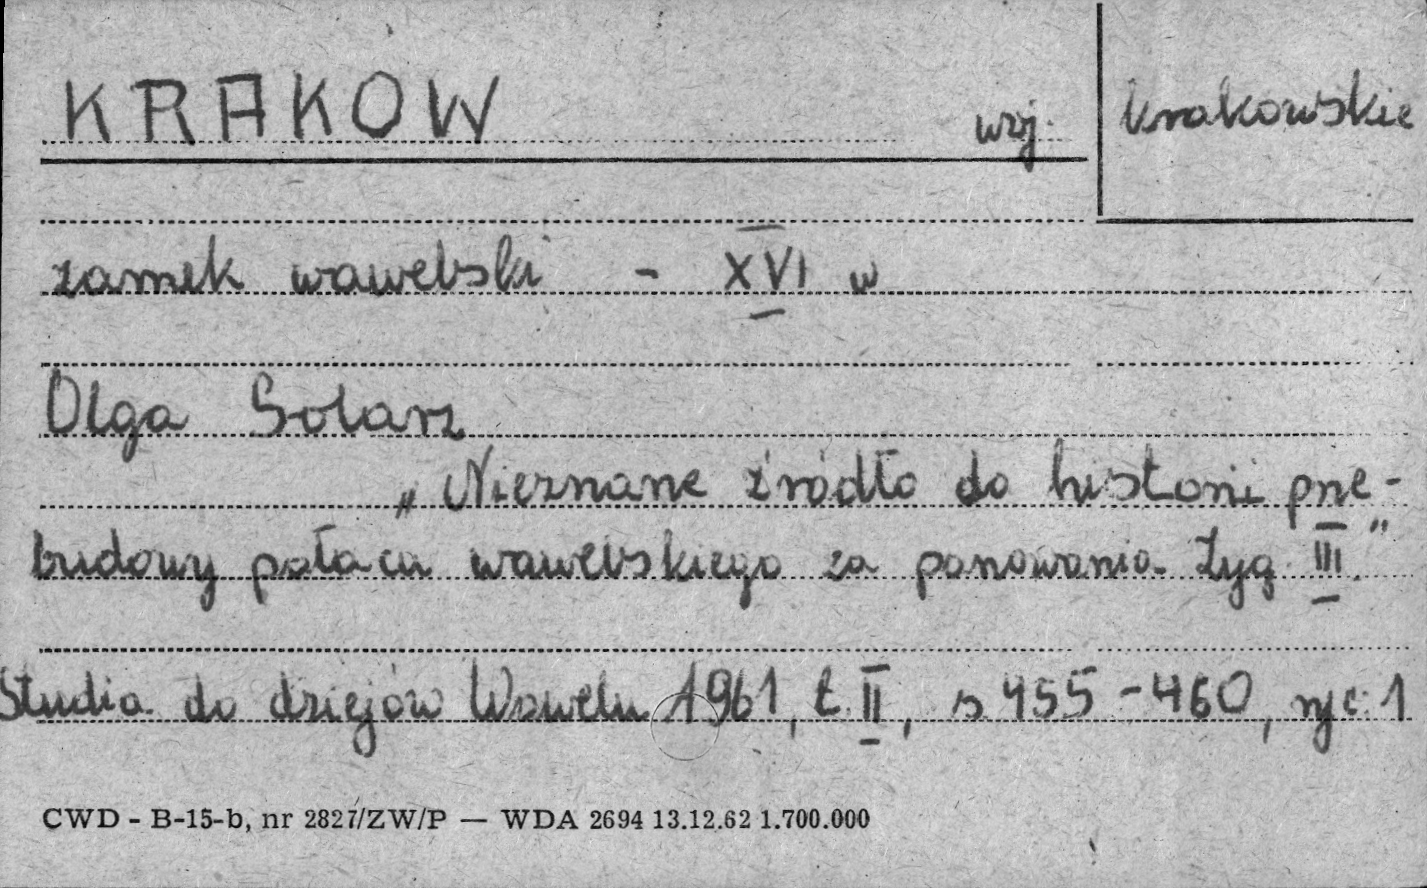 KRAKOW woj. krakowskie
zamek wawelski - XVI w
Olga Solarz
„Nieznane źródło do historii prze-
budowy pałacu wawelskiego za panowania Zyg. III."
Studia do dziejów Wawelu 1961, t. II, s. 455-460, ryc. 1
CWD - B-15-b, nr 2827/ZW/P — WDA 2694 13.12.62 1.700.000